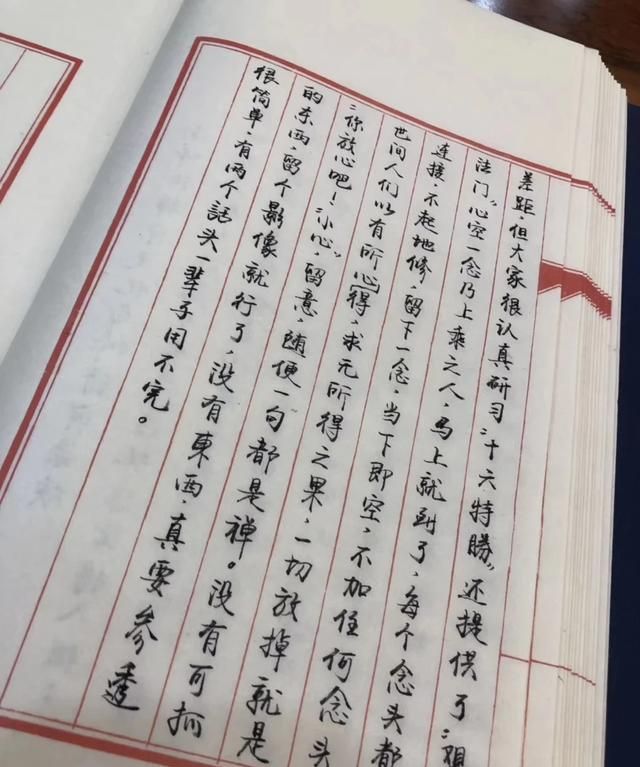 差距,但大家很认真研习“十六特勝”,还提供了“祖
法门“心空一念乃上乘之人,马上就到了,每个念头都
连接,不起地修,留下一念,当下即空,不加任何念头
世间人们以有所心得,求无所得之果,一切放掉就是
“你放心吧!“小心”,留意,随便一句都是禅。没有可抓
的东西,留个影像就行了,没有東西,真要参透
很简单,有两个話头一辈子用不完。